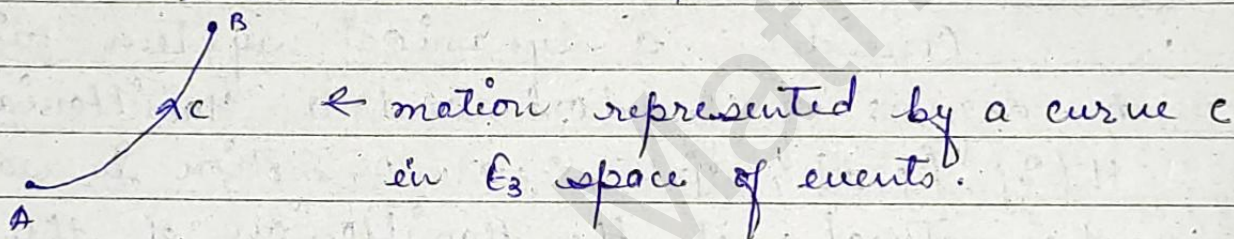 B
C
← motion represented by a curve C
in E₃ space of events.
A
Mati